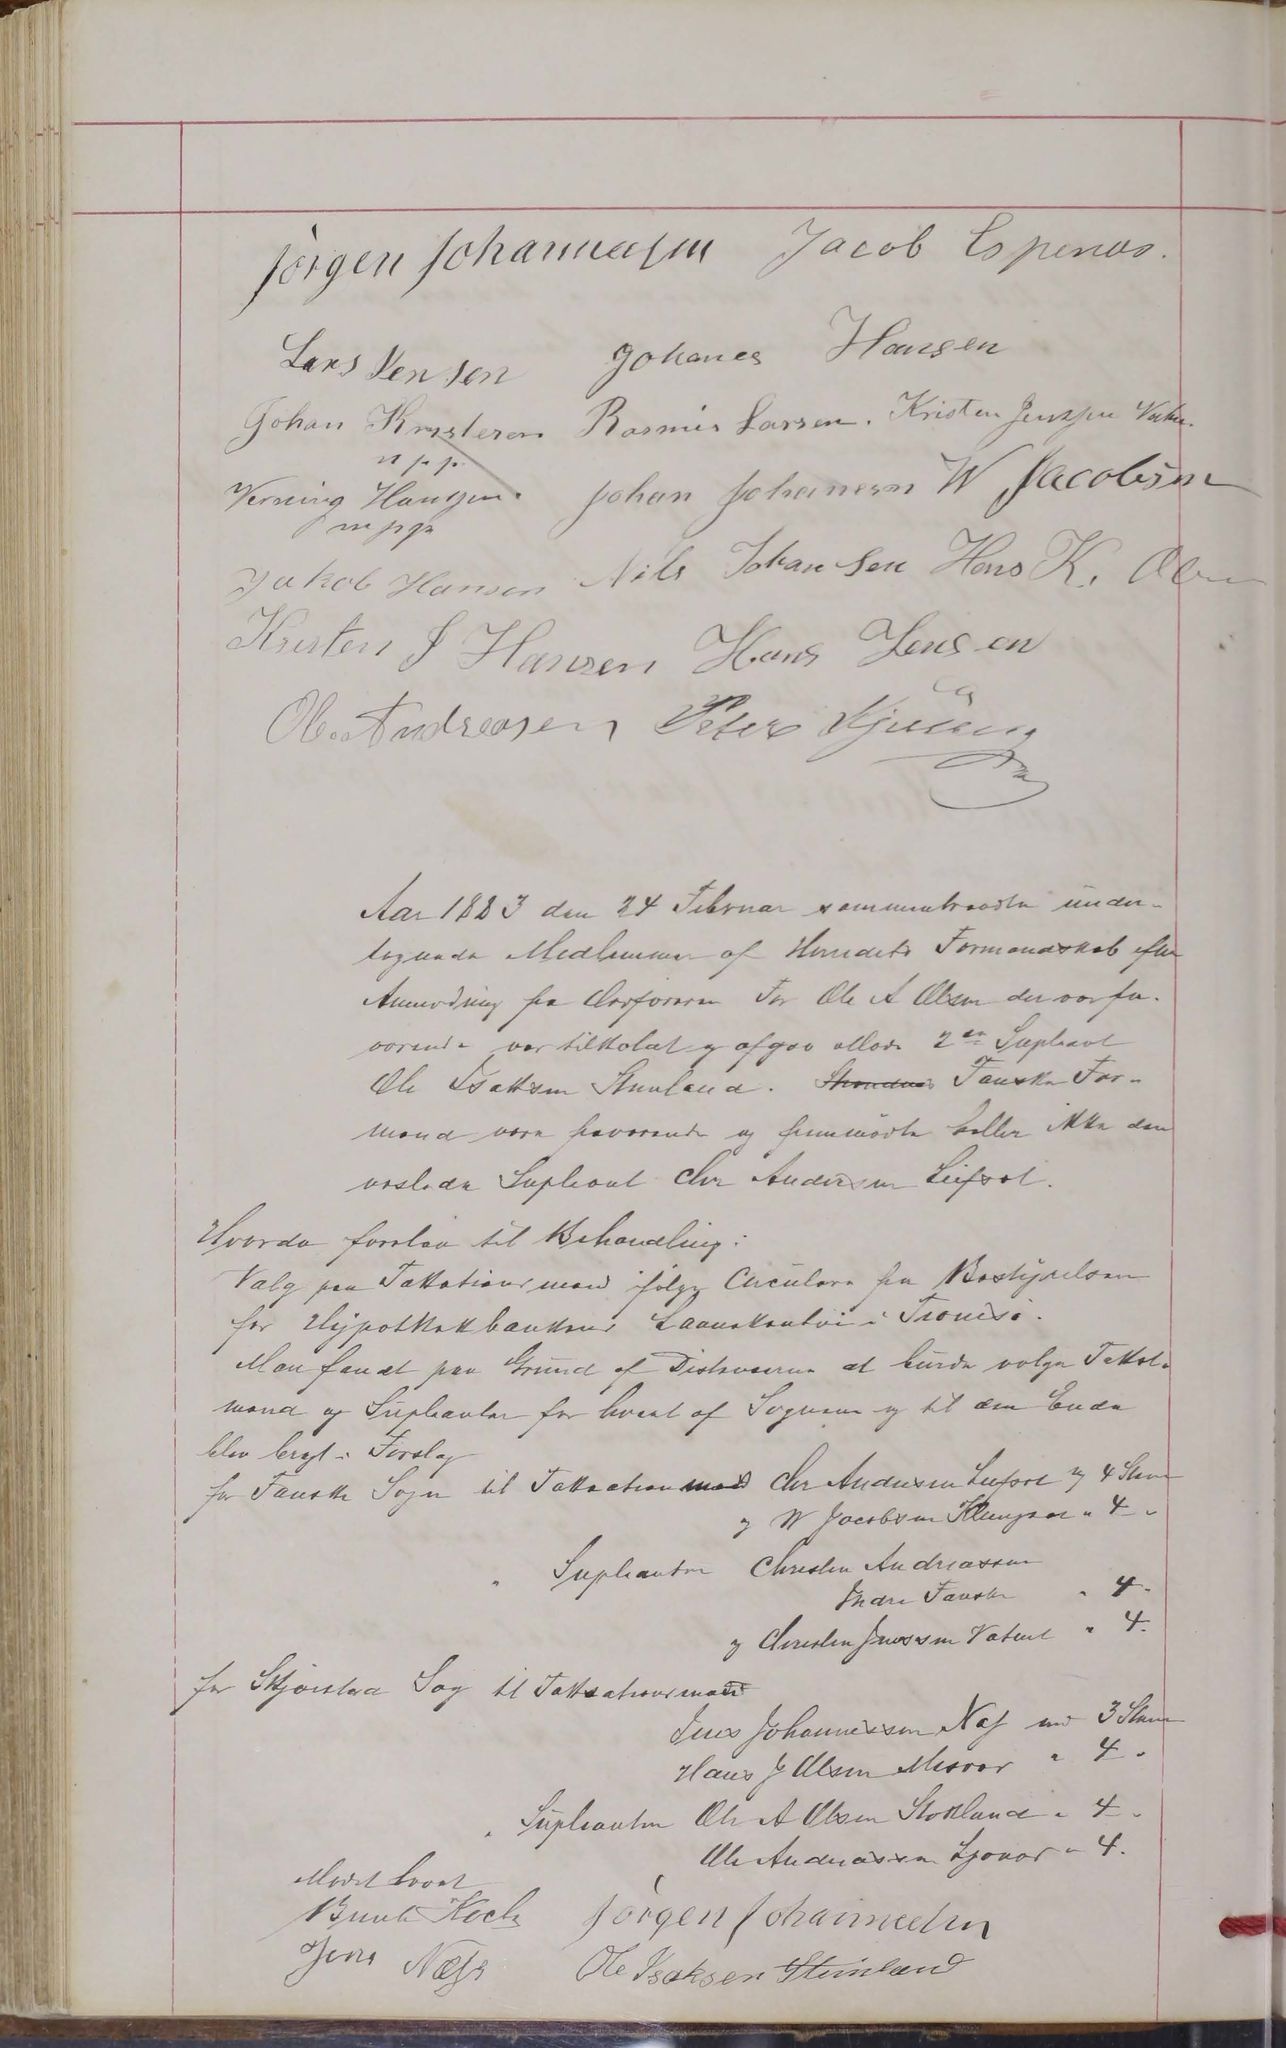 Jörgen Johannessen Jacob Espenæs.
Lars Jensen Johanes Hansen
Johan Kristensen Rasmus Larsen. Kristen Jenssen
m p p
Hanssen. Johan Johannesen W Jacobsen
m p p
Jakob Hansen Nils Johansen Hans K. Olsen
Kristen J Hansen Hans Jensen
Ole Andreasen Peter
Aar 1883 den 24 Februar sammentraadte under-
tegnede Medlemmer af Herredets Formandskab efter
Anmodning fra Ordføreren For Ole A Olsen der var fra-
værende var tilkaldt og afgav 2den Supleant
Ole Isaksen Stenland. Fauske For-
mænd vare fraværende og fremmødte heller ikke den
varslede Supleant Chr Andersen Leifset.
Hvorda foretaa til Behandling:
Valg paa Taktationsmænd ifølge Circulære fra Bestyrelsen
for Hypothekbankens Laanekontor i Tromsø.
Man fandt paa Grund af Distancerne at burde vælge Takst-
mænd og Supleanter for hvert af Sognene og til den Ende
blev bragt i Forslag
for Fauske Sogn til Taksationsmænd Chr Andersen Leifset 4 Stem
og W Jacobsen Klungset " 4 "
" Supleanter Christen Andreassen
Indre Fauske " 4 "
og Christen Jenssen Vatnet " 4.
for Skjerstad Sog til Taksationsmænd
Jens Johannessen Næs med 3 Stem
Hans J Olsen Misvær " 4 "
" Supleanter Ole A Olsen Stokland " 4 "
Ole Andreassen Ljønes " 4.
Mødet hævet
Bernt Koch Jörgen Johannessen
Jens Næss Ole Isaksen Stenland